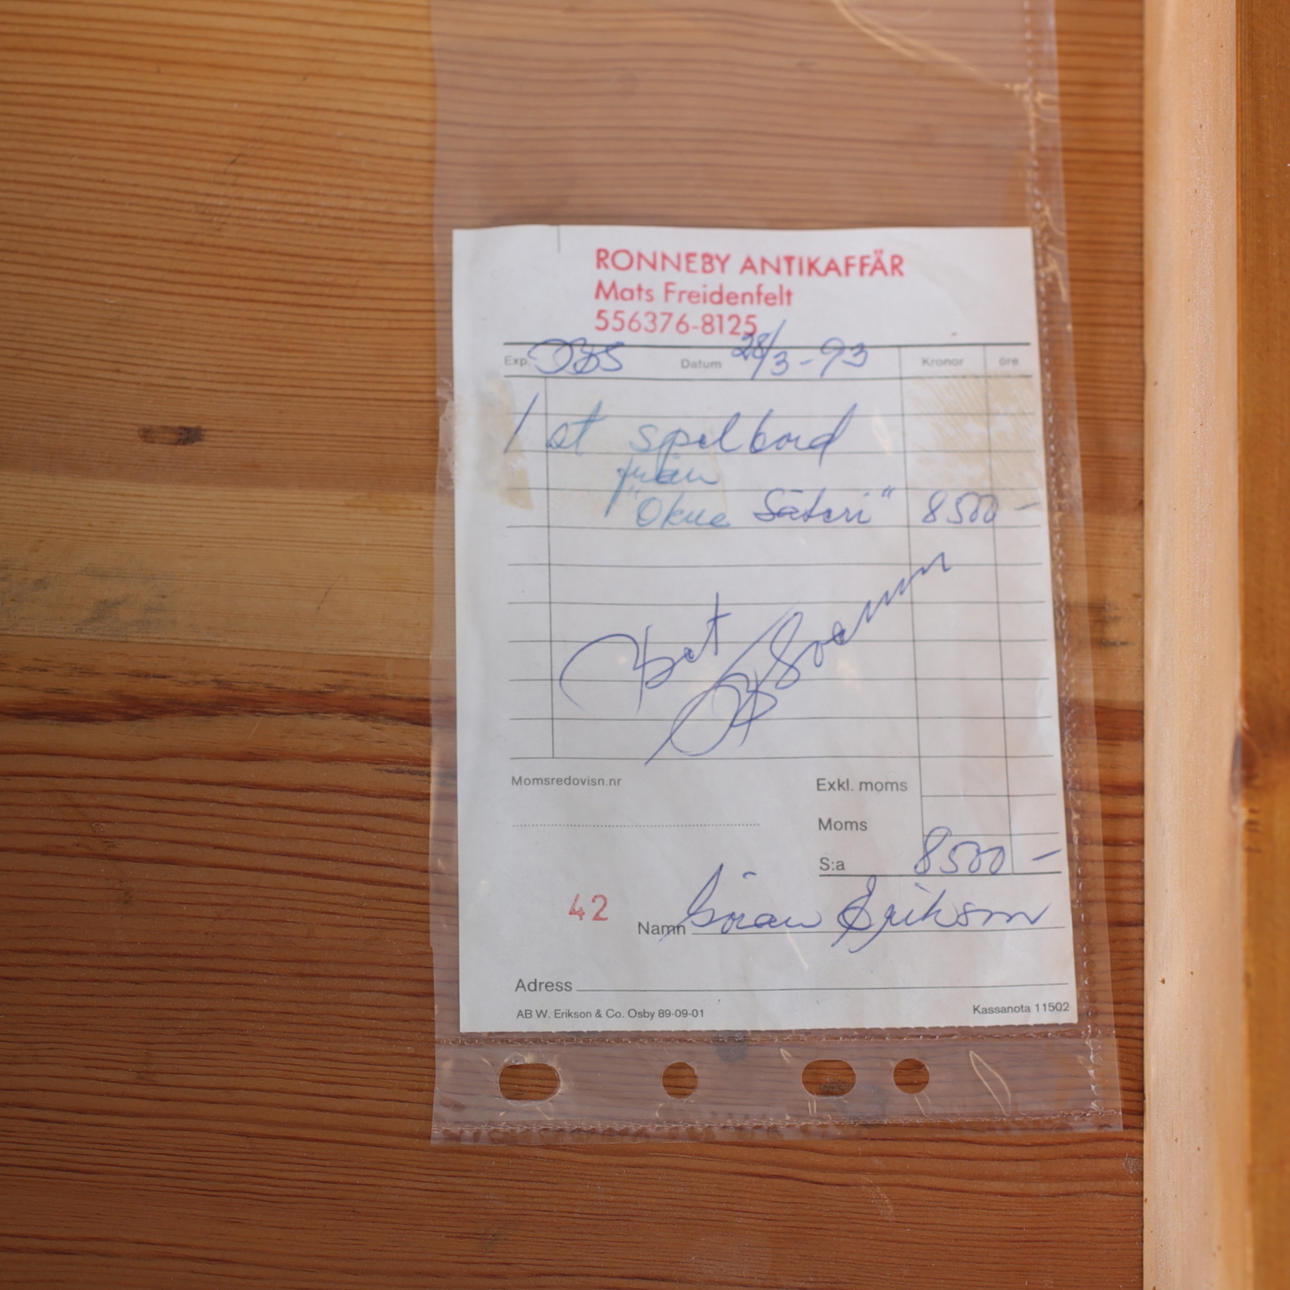 RONNEBY ANTIKAFFÄR
Mats Freidenfelt
556376-8125
Exp. Datum 28/3-93 Kronor öre
1 st spelbord
från
"Okna Säteri" 8500 -
Momsredovisn.nr
Exkl. moms
Moms
S:a 8500 -
42
Namn Göran Erikson
Adress
AB W. Erikson & Co. Osby 89-09-01
Kassanota 11502